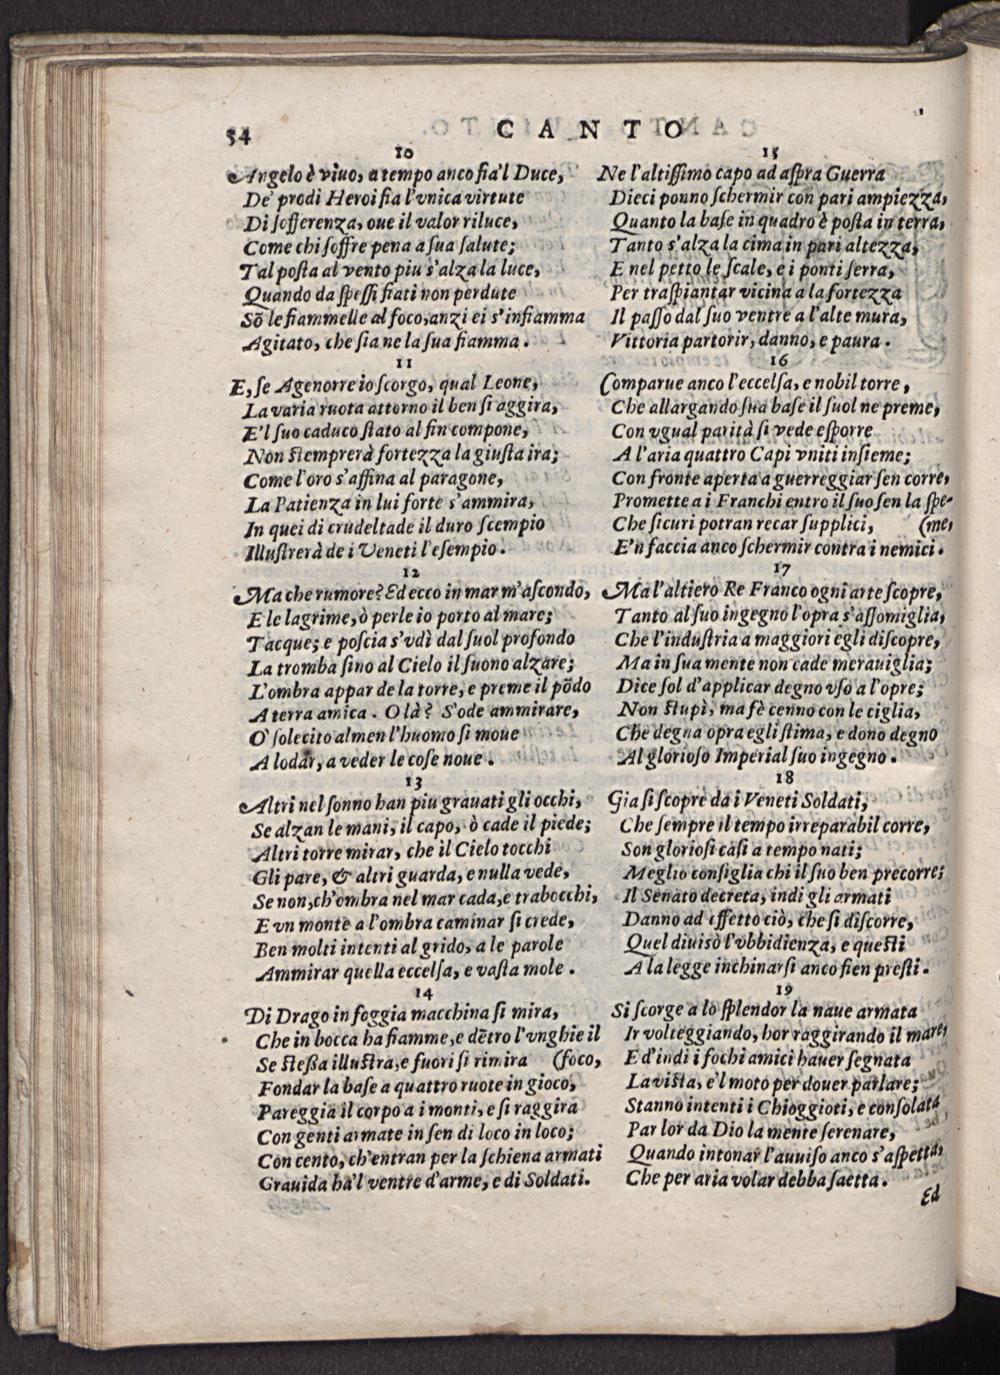 54
CANTO
10
Angelo è viuo, a tempo anco fia'l Duce,
De' prodi Heroi fia l'vnica virtute
Di sofferenza, oue il valor riluce,
Come chi soffre pena a sua salute;
Tal posta al vento piu s'alza la luce,
Quando da spessi fiati non perdute
Sõ le fiammelle al foco, anzi ei s'infiamma
Agitato, che sia ne la sua fiamma.
11
E, se Agenorre io scorgo, qual Leone,
La varia ruota attorno il ben si aggira,
E'l suo caduco stato al fin compone,
Non stemprerà fortezza la giusta ira;
Come l'oro s'affina al paragone,
La Patienza in lui forte s'ammira,
In quei di crudeltade il duro scempio
Illustrerà de i Veneti l'esempio.
12
Ma che rumore? Ed ecco in mar m'ascondo,
E le lagrime, ò perle io porto al mare;
Tacque; e poscia s'vdì dal suol profondo
La tromba sino al Cielo il suono alzare;
L'ombra appar de la torre, e preme il põdo
A terra amica. O là? S'ode ammirare,
O' solecito almen l'huomo si moue
A lodar, a veder le cose noue.
13
Altri nel sonno han piu grauati gli occhi,
Se alzan le mani, il capo, ò cade il piede;
Altri torre mirar, che il Cielo tocchi
Gli pare, & altri guarda, e nulla vede,
Se non, ch'ombra nel mar cada, e trabocchi,
E vn monte a l'ombra caminar si crede,
Ben molti intenti al grido, a le parole
Ammirar quella eccelsa, e vasta mole.
14
Di Drago in foggia macchina si mira,
Che in bocca ha fiamme, e dẽtro l'vnghie il
Se stessa illustra, e fuori si rimira (foco,
Fondar la base a quattro ruote in gioco,
Pareggia il corpo a i monti, e si raggira
Con genti armate in sen di loco in loco;
Con cento, ch'entran per la schiena armati
Grauida ha'l ventre d'arme, e di Soldati.
15
Ne l'altissimo capo ad aspra Guerra
Dieci ponno schermir con pari ampiezza,
Quanto la base in quadro è posta in terra,
Tanto s'alza la cima in pari altezza,
E nel petto le scale, e i ponti serra,
Per traspiantar vicina a la fortezza
Il passo dal suo ventre a l'alte mura,
Vittoria partorir, danno, e paura.
16
Comparue anco l'eccelsa, e nobil torre,
Che allargando sua base il suol ne preme,
Con vgual parità si vede esporre
A l'aria quattro Capi vniti insieme;
Con fronte aperta a guerreggiar sen corre,
Promette a i Franchi entro il suo sen la spe-
Che sicuri potran recar supplici, (me,
E'n faccia anco schermir contra i nemici.
17
Ma l'altiero Re Franco ogni arte scopre,
Tanto al suo ingegno l'opra s'assomiglia,
Che l'industria a maggiori egli discopre,
Ma in sua mente non cade merauiglia;
Dice sol d'applicar degno vso a l'opre;
Non stupì, ma fè cenno con le ciglia,
Che degna opra egli stima, e dono degno
Al glorioso Imperial suo ingegno.
18
Gia si scopre da i Veneti Soldati,
Che sempre il tempo irreparabil corre,
Son gloriosi casi a tempo nati;
Meglio consiglia chi il suo ben precorre;
Il Senato decreta, indi gli armati
Danno ad effetto ciò, che si discorre,
Quel diuisò l'vbbidienza, e questi
A la legge inchinarsi anco fien presti.
19
Si scorge a lo splendor la naue armata
Ir volteggiando, hor raggirando il mare,
E d'indi i fochi amici hauer segnata
La vista, e'l moto per douer parlare;
Stanno intenti i Chioggioti, e consolata
Par lor da Dio la mente serenare,
Quando intonar l'auuiso anco s'aspetta,
Che per aria volar debba saetta.
Ed